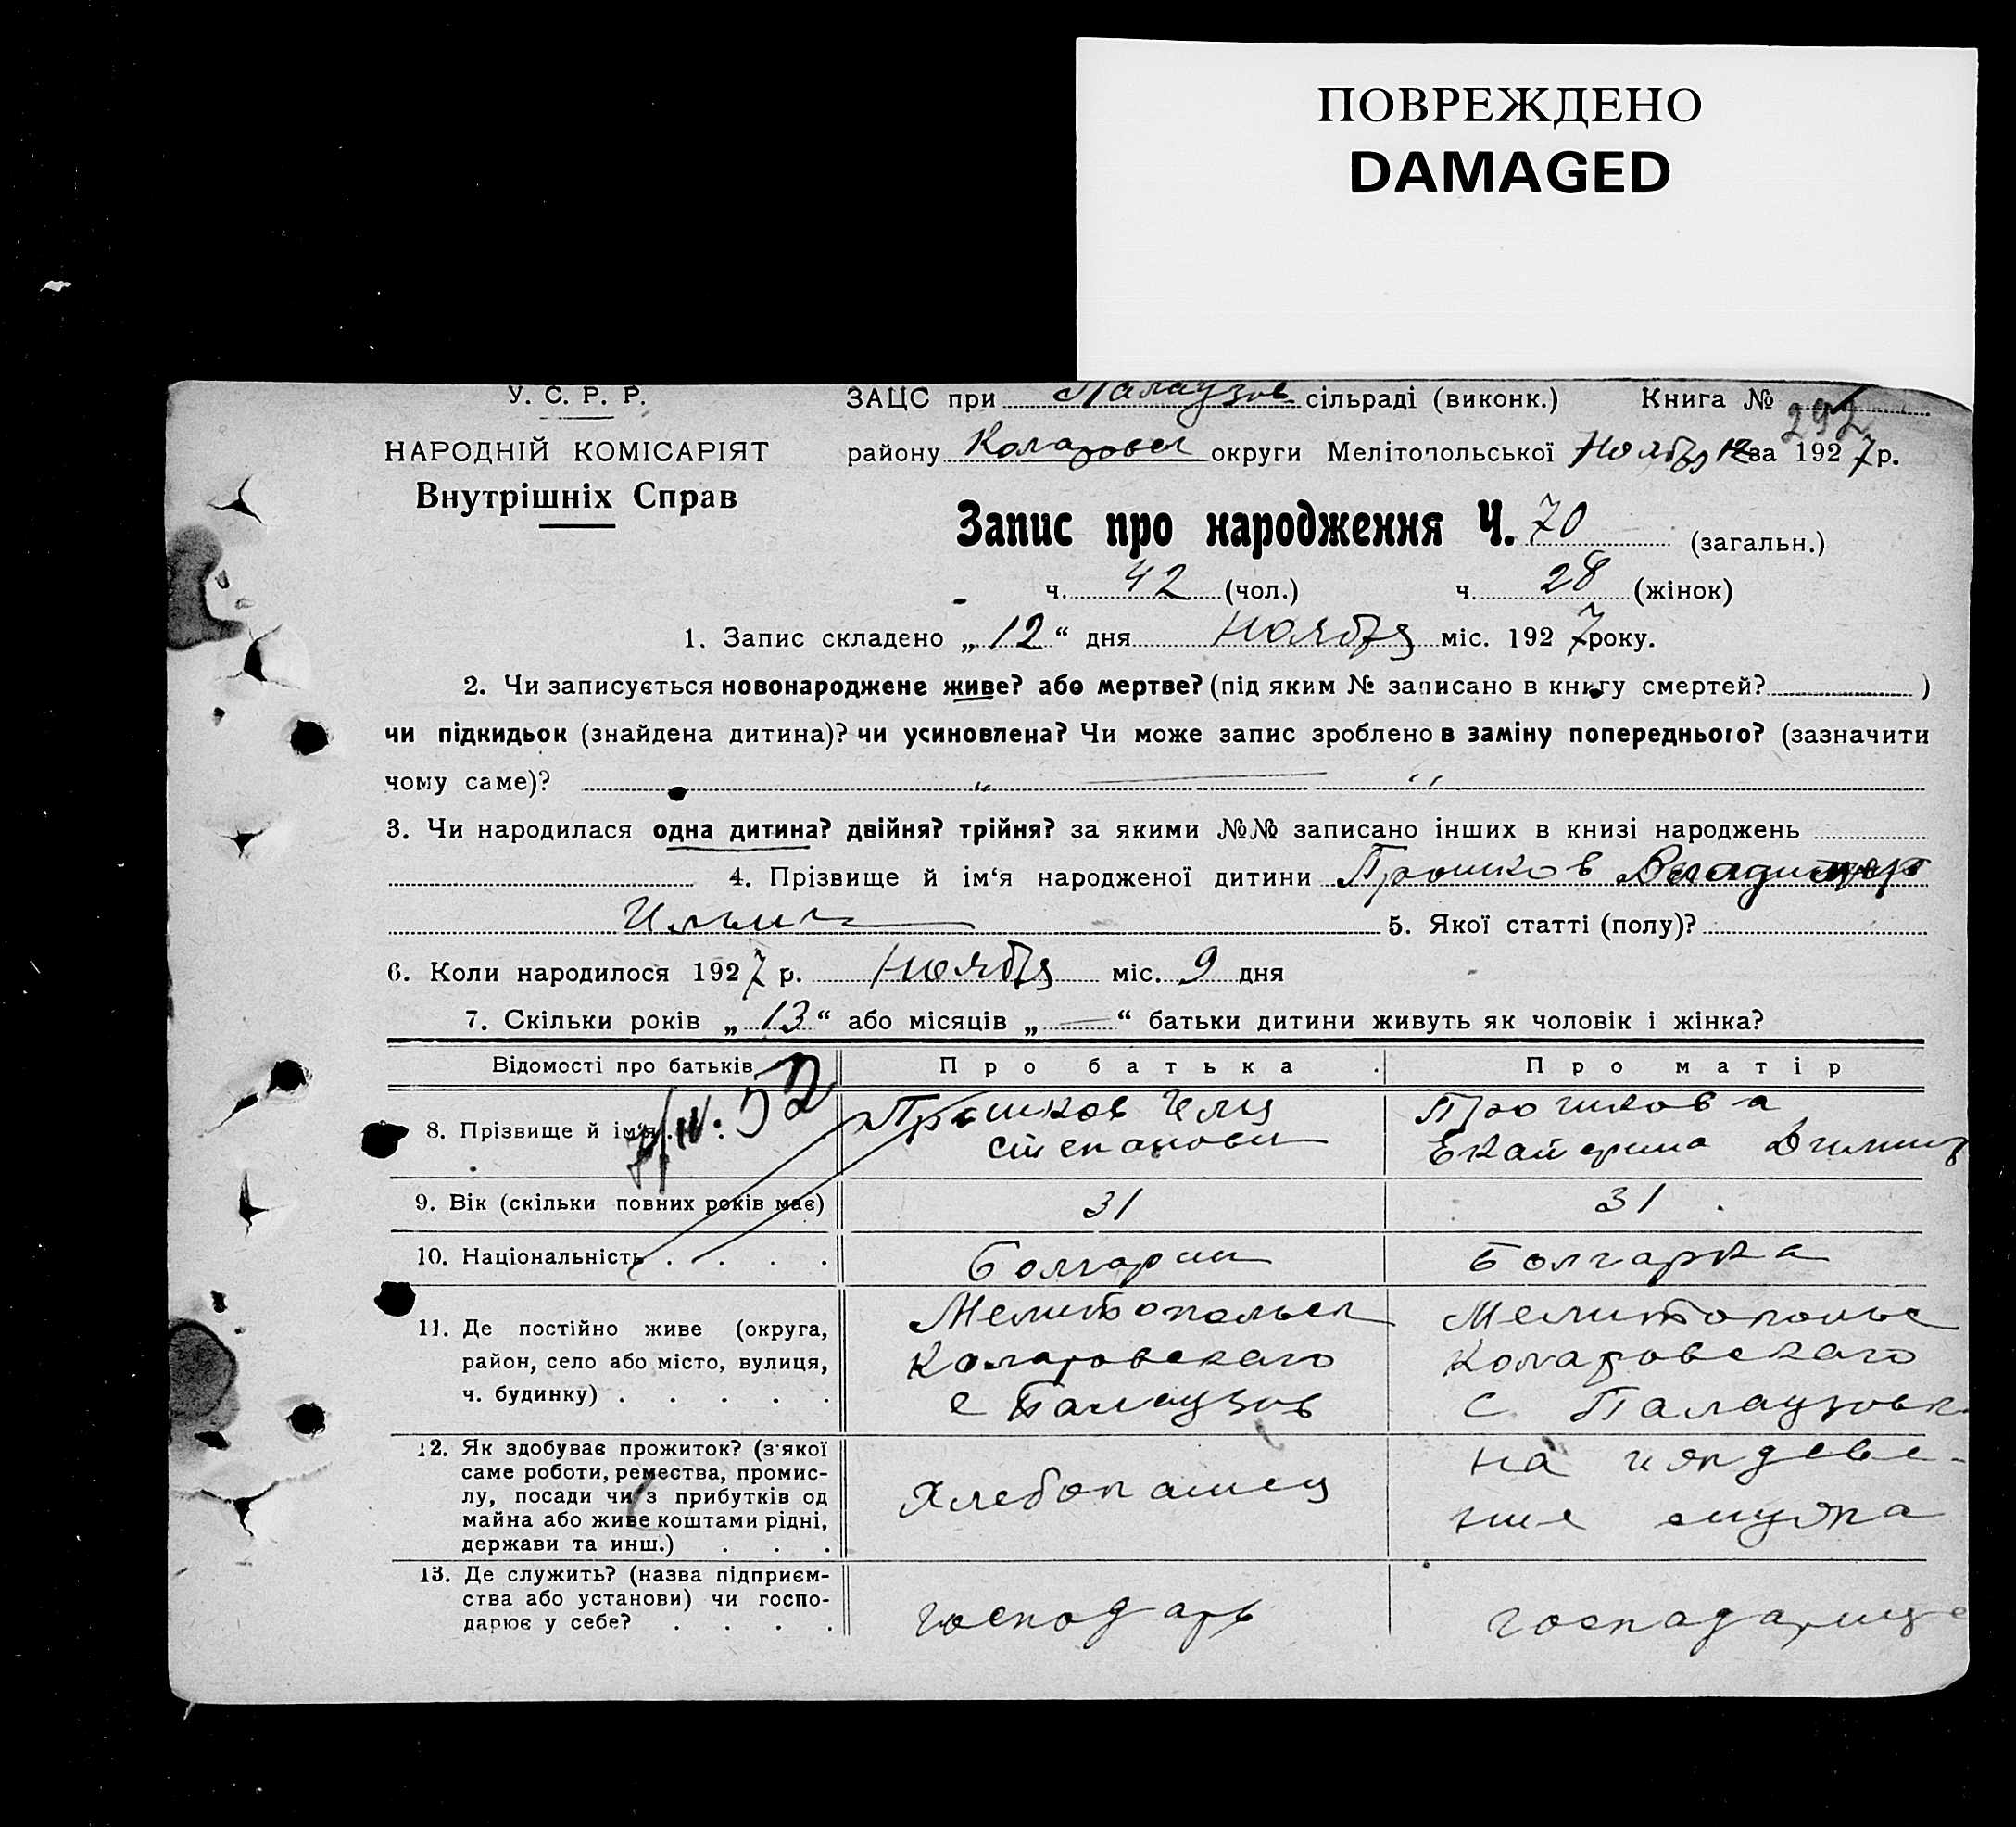 ПОВРЕЖДЕНО
DAMAGED
У. С. Р. Р.
НАРОДНІЙ КОМІСАРІЯТ
Внутрішніх Справ
ЗАЦС при Палаузов сільраді (виконк.) Книга №
292
району Коларовск округи Мелітопольської Ноябр 12ва 1927 р.
Запис про народження Ч. 70 (загальн.)
ч. 42 (чол.) ч. 28 (жінок)
1. Запис складено „12“ дня Ноября міс. 1927 року.
2. Чи записується новонароджене живе? або мертве? (під яким № записано в книгу смертей? )
чи підкидьок (знайдена дитина)? чи усиновлена? Чи може запис зроблено в заміну попереднього? (зазначити
чому саме)?
3. Чи народилася одна дитина? двійня? трійня? за якими №№ записано інших в книзі народжень
4. Прізвище й ім‘я народженої дитини Прошков Владимир
Ильич 5. Якої статті (полу)?
6. Коли народилося 1927 р. Ноября міс. 9 дня
7. Скільки років „13“ або місяців „—“ батьки дитини живуть як чоловік і жінка?
Відомості про батьків Про батька Про матір
8. Прізвище й ім‘я Прошков Илия Степанович Прошкова Екатерина
9. Вік (скільки повних років має) 31 31
10. Національність Болгарин Болгарка
11. Де постійно живе (округа, Мелитопольск Мелитопольс
район, село або місто, вулиця, Коларовскаго Коларовскаго
ч. будинку) с Палаузов с. Палаузовк
12. Як здобуває прожиток? (з якої
саме роботи, ремества, промис- Хлебопашец на иждеве-
лу, посади чи з прибутків од
майна або живе коштами рідні, ние мужа
держави та инш.)
13. Де служить? (назва підприєм-
ства або установи) чи госпо- господарь господарице
дарює у себе?